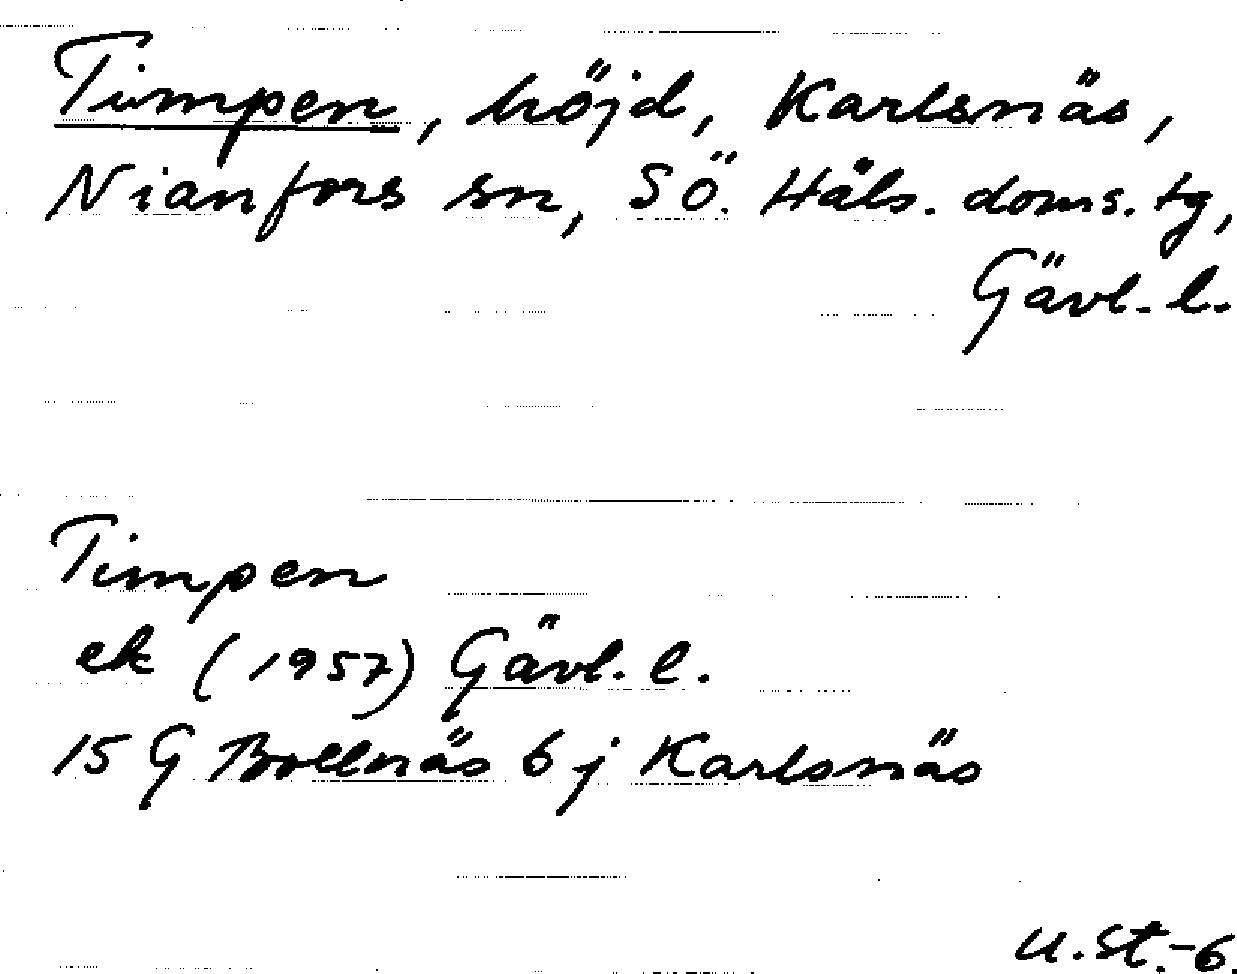 Timpen, höjd, Karlsnäs,
Nianfors sn, SÖ. Häls. doms. tg,
Gävl. l.
Timpen
ek (1957) Gävl. l.
15 G Bollnäs 6 j Karlsnäs
U.St.-6.